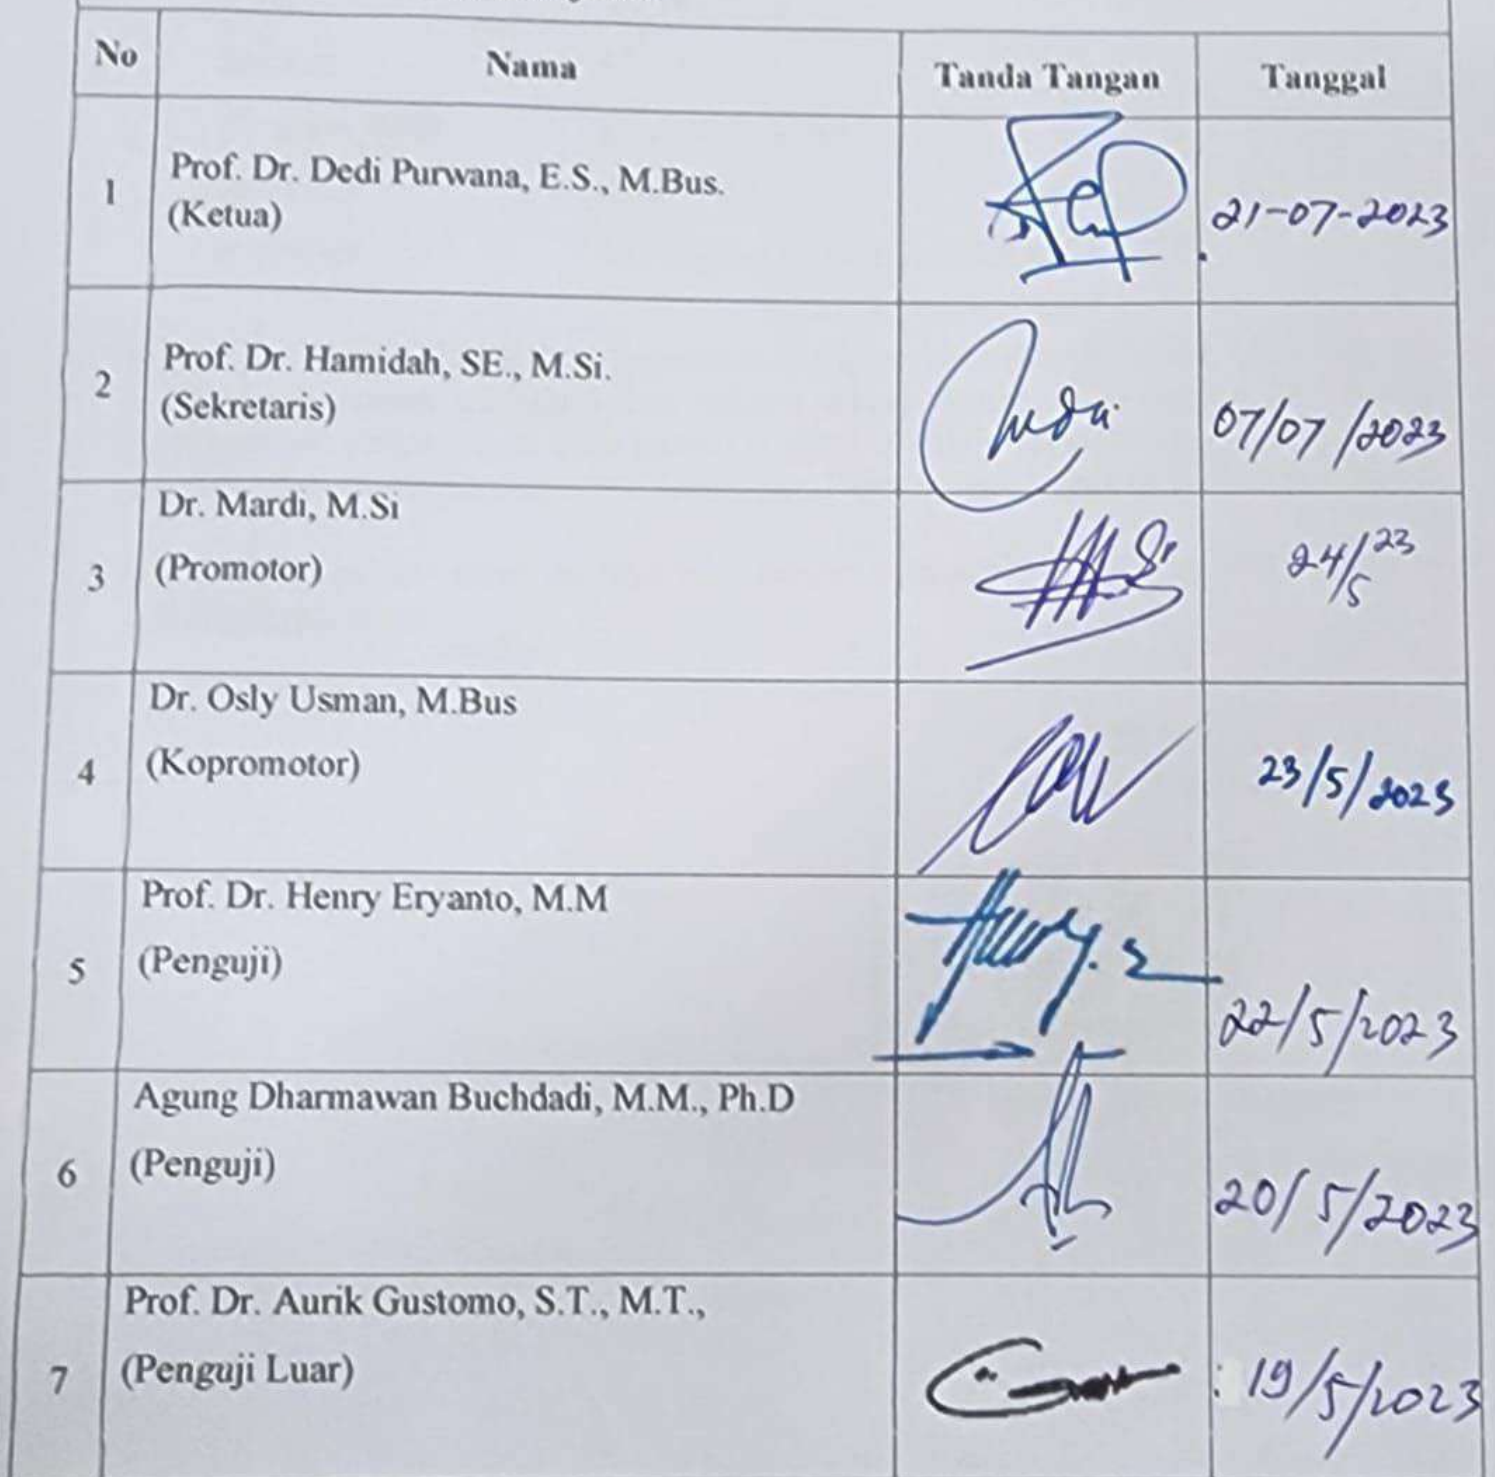 No Nama Tanda Tangan Tanggal
1 Prof. Dr. Dedi Purwana, E.S., M.Bus.
(Ketua)
21-07-2023
2 Prof. Dr. Hamidah, SE., M.Si.
(Sekretaris)
07/07/2023
Dr. Mardi, M.Si
3 (Promotor)
24/5 23
Dr. Osly Usman, M.Bus
4 (Kopromotor)
23/5/2023
Prof. Dr. Henry Eryanto, M.M
5 (Penguji)
22/5/2023
Agung Dharmawan Buchdadi, M.M., Ph.D
6 (Penguji)
20/5/2023
Prof. Dr. Aurik Gustomo, S.T., M.T.,
7 (Penguji Luar)
: 19/5/2023